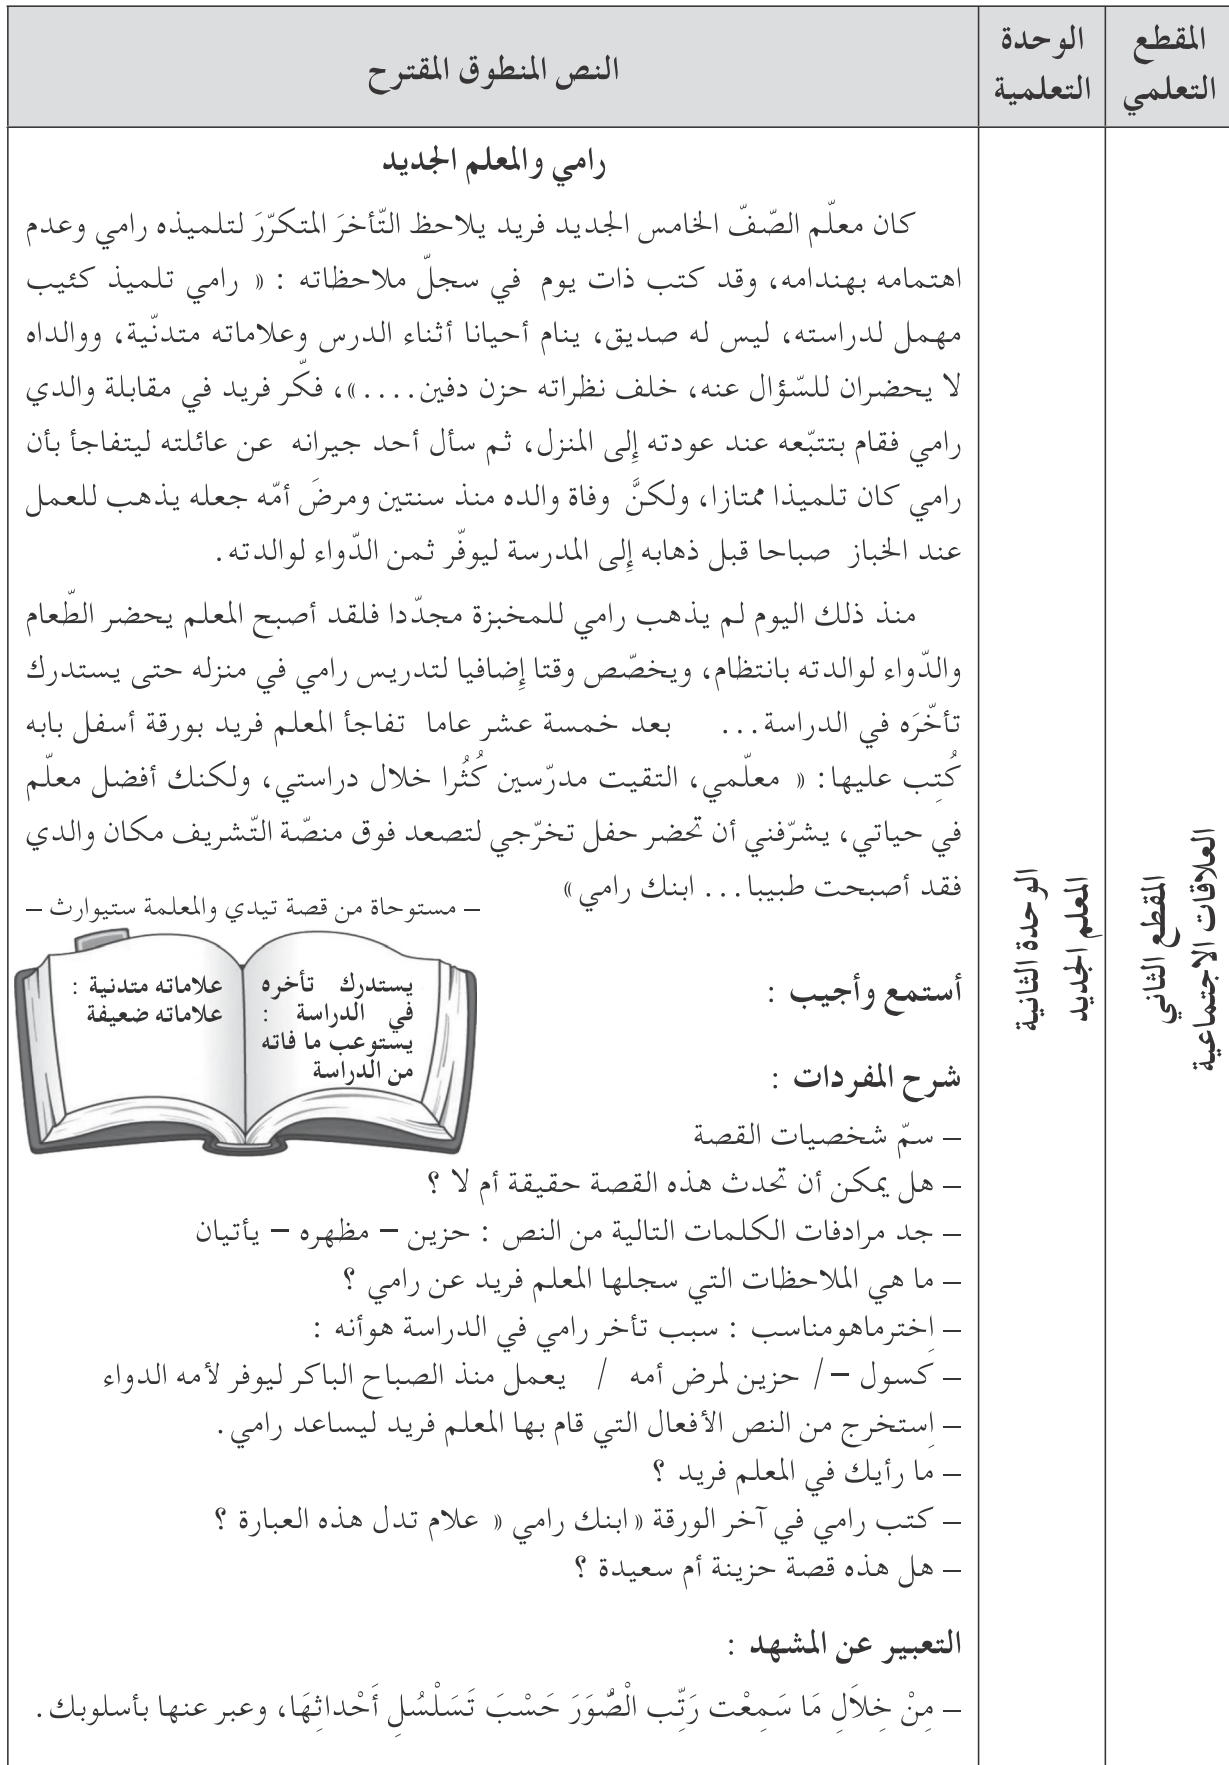 المقطع
التعلمي
الوحدة
التعلمية
النص المنطوق المقترح
المقطع الثاني
العلاقات الاجتماعية
الوحدة الثانية
المعلم الجديد
رامي والمعلم الجديد
كان معلّم الصّفّ الخامس الجديد فريد يلاحظ التّأخرَ المتكرّرَ لتلميذه رامي وعدم
اهتمامه بهندامه، وقد كتب ذات يوم في سجلّ ملاحظاته : « رامي تلميذ كئيب
مهمل لدراسته، ليس له صديق، ينام أحيانا أثناء الدرس وعلاماته متدنّية، ووالداه
لا يحضران للسّؤال عنه، خلف نظراته حزن دفين....»، فكّر فريد في مقابلة والدي
رامي فقام بتتبّعه عند عودته إِلى المنزل، ثم سأل أحد جيرانه عن عائلته ليتفاجأ بأن
رامي كان تلميذا ممتازا، ولكنَّ وفاة والده منذ سنتين ومرضَ أمّه جعله يذهب للعمل
عند الخباز صباحا قبل ذهابه إِلى المدرسة ليوفّر ثمن الدّواء لوالدته.
منذ ذلك اليوم لم يذهب رامي للمخبزة مجدّدا فلقد أصبح المعلم يحضر الطّعام
والدّواء لوالدته بانتظام، ويخصّص وقتا إِضافيا لتدريس رامي في منزله حتى يستدرك
تأخّرَه في الدراسة... بعد خمسة عشر عاما تفاجأ المعلم فريد بورقة أسفل بابه
كُتِب عليها: « معلّمي، التقيت مدرّسين كُثُرا خلال دراستي، ولكنك أفضل معلّم
في حياتي، يشرّفني أن تحضر حفل تخرّجي لتصعد فوق منصّة التّشريف مكان والدي
فقد أصبحت طبيبا... ابنك رامي»
– مستوحاة من قصة تيدي والمعلمة ستيوارث –
يستدرك تأخره
في الدراسة :
يستوعب ما فاته
من الدراسة
علاماته متدنية :
علاماته ضعيفة
أستمع وأجيب :
شرح المفردات :
– سمّ شخصيات القصة
– هل يمكن أن تحدث هذه القصة حقيقة أم لا ؟
– جد مرادفات الكلمات التالية من النص : حزين – مظهره – يأتيان
– ما هي الملاحظات التي سجلها المعلم فريد عن رامي ؟
– اِخترماهومناسب : سبب تأخر رامي في الدراسة هوأنه :
– كسول –/ حزين لمرض أمه / يعمل منذ الصباح الباكر ليوفر لأمه الدواء
– اِستخرج من النص الأفعال التي قام بها المعلم فريد ليساعد رامي.
– ما رأيك في المعلم فريد ؟
– كتب رامي في آخر الورقة «ابنك رامي « علام تدل هذه العبارة ؟
– هل هذه قصة حزينة أم سعيدة ؟
التعبير عن المشهد :
– مِنْ خِلَالِ مَا سَمِعْت رَتِّب الْصُّوَرَ حَسْبَ تَسَلْسُلِ أَحْداثِهَا، وعبر عنها بأسلوبك.